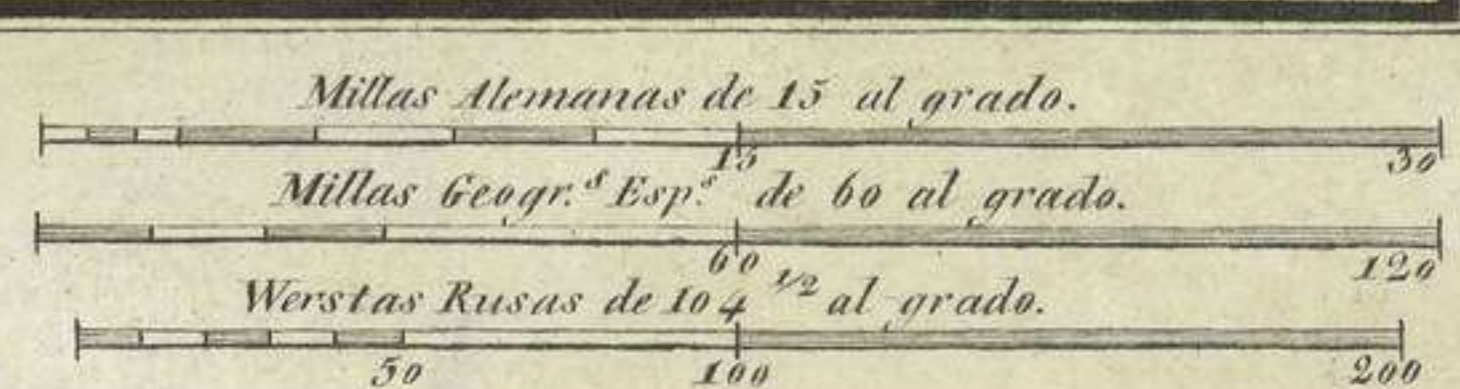 Millas Alemanas de 15 al grado.
15 30
Millas Geogr.s Esp.s de 60 al grado.
60 120
Werstas Rusas de 104 1/2 al grado.
50 100 200